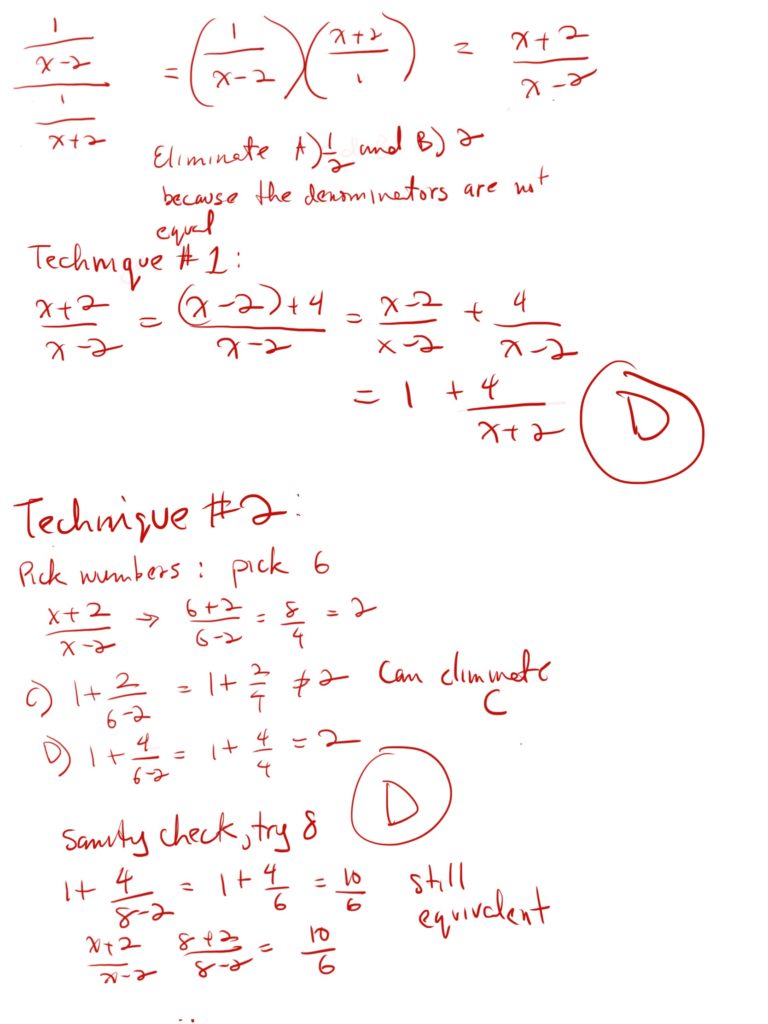 \frac{\frac{1}{x-2}}{\frac{1}{x+2}} = \left(\frac{1}{x-2}\right)\left(\frac{x+2}{1}\right) = \frac{x+2}{x-2}
Eliminate A) \frac{1}{2} and B) 2
because the denominators are not
equal
Technique #1:
\frac{x+2}{x-2} = \frac{(x-2)+4}{x-2} = \frac{x-2}{x-2} + \frac{4}{x-2}
= 1 + \frac{4}{x+2} D
Technique #2:
Pick numbers: pick 6
\frac{x+2}{x-2} → \frac{6+2}{6-2} = \frac{8}{4} = 2
C) 1 + \frac{2}{6-2} = 1 + \frac{2}{4} ≠ 2 Can eliminate
C
D) 1 + \frac{4}{6-2} = 1 + \frac{4}{4} = 2
D
Sanity check, try 8
1 + \frac{4}{8-2} = 1 + \frac{4}{6} = \frac{10}{6} still
equivalent
\frac{x+2}{x-2} \frac{8+2}{8-2} = \frac{10}{6}